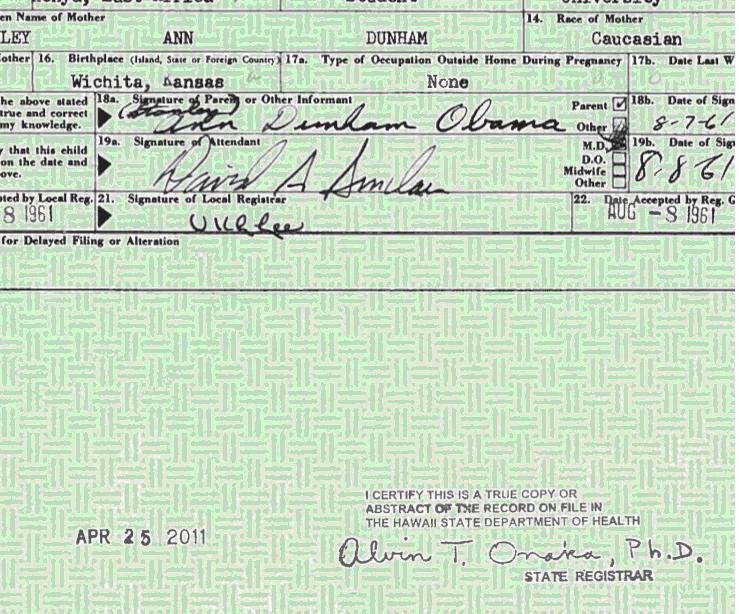 en Name of Mother
14. Race of Mother
LEY ANN DUNHAM
Caucasian
other 16. Birthplace (Island, State or Foreign Country) 17a. Type of Occupation Outside Home During Pregnancy 17b. Date Last W
Wichita, Kansas None
he above stated 18a. Signature of Parent or Other Informant Parent 18b. Date of Sign
true and correct (Stanley)
my knowledge. Ann Dunham Obama Other 8-7-61
19a. Signature of Attendant M.D. 19b. Date of Sig
y that this child D.O.
on the date and David A Sinclair Midwife 8-8-61
ove. Other
ted by Local Reg. 21. Signature of Local Registrar 22. Date Accepted by Reg. G
8 1961 AUG -8 1961
for Delayed Filing or Alteration
I CERTIFY THIS IS A TRUE COPY OR
ABSTRACT OF TXE RECORD ON FILE IN
THE HAWAII STATE DEPARTMENT OF HEALTH
APR 25 2011
Alvin T. Onaka, Ph.D.
STATE REGISTRAR